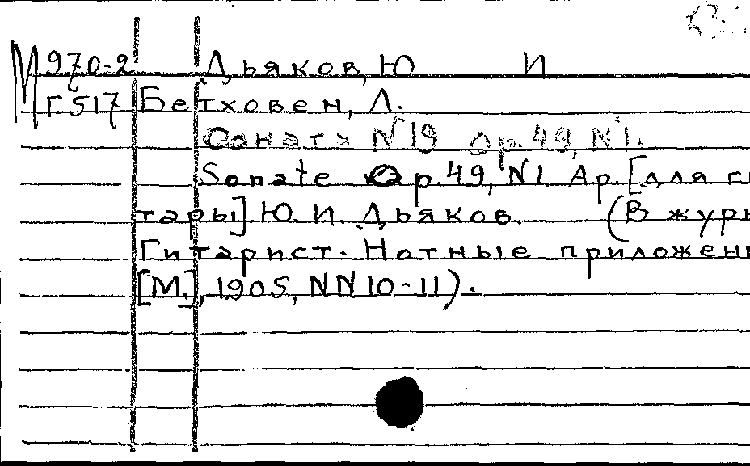 М 970-2 Дьяков, Ю И
Г517 Бетховен, Л.
Соната N19 op. 49, N1.
Sonate Op. 49, N1. Ар. [для ги
тары] Ю. И. Дьяков. (В журн
Гитарист. Нотные приложени
[М.], 1905, NN 10-11).